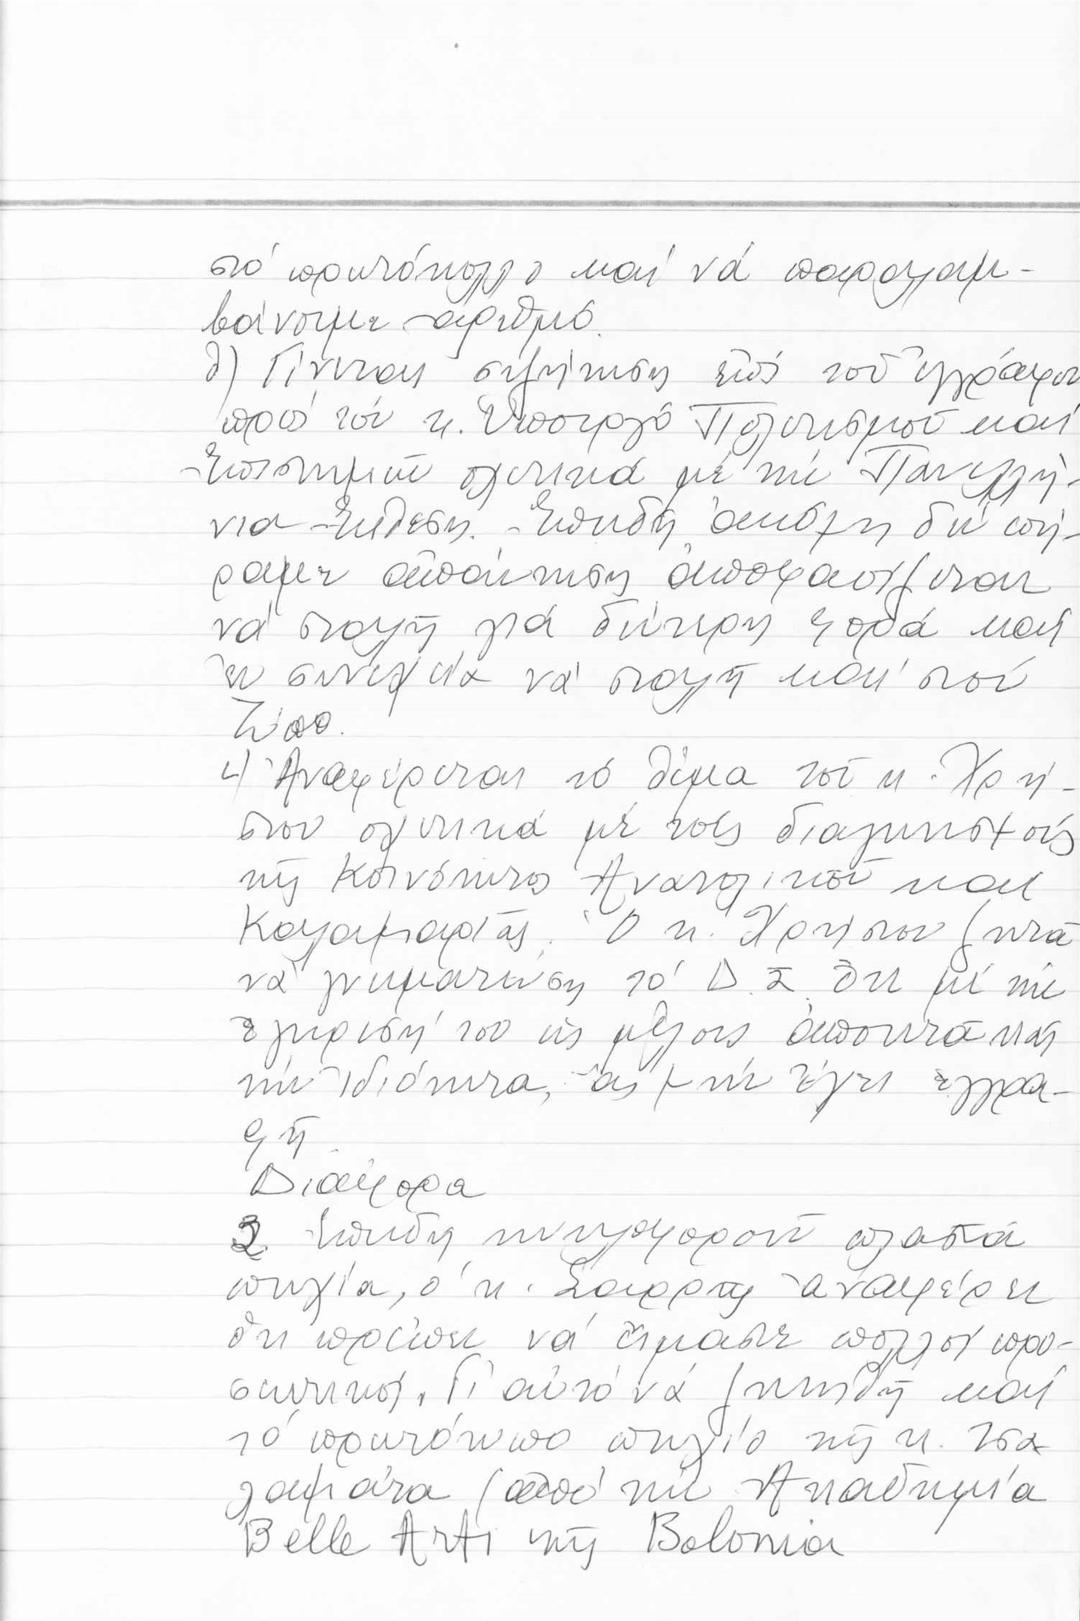 στό πρωτόκολλο καί νά παραλαμ-
βάνουμε ἀριθμό.
δ) Γίνεται συζήτηση ἐπί τοῦ ἐγγράφου
πρός τόν κ. Ὑπουργό Πολιτισμοῦ καί
Ἐπιστημῶν σχετικά μέ τήν Πανελλή-
νια Ἔκθεση. Ἐπειδή ἀκόμη δέν πή-
ραμε ἀπάντηση ἀποφασίζεται
νά σταλῆ γιά δεύτερη φορά καί
ἐν συνεχεία νά σταλῆ καί στόν
Τύπο.
ε) Ἀναφέρεται τό θέμα τοῦ κ. Χρή-
στου σχετικά μέ τούς διαγωνισμούς
τῆς Κοινότητος Ἀνατολικοῦ καί
Καλαμαριᾶς. Ὁ κ. Χρήστου ζητᾶ
νά γνωματεύση τό Δ.Σ. ὅτι μέ τήν
ἔγκρισή του ὡς μέλους ἀποκτᾶ καί
τήν ἰδιότητα, ἄς μήν ἔγινε ἐγγρα-
φή
Διάφορα
2. Ἐπειδή κυκλοφοροῦν πλαστά
πτυχία, ὁ κ. Σαρρῆς ἀναφέρει
ὅτι πρέπει νά εἴμαστε πολλοί προ-
σεκτικοί. Γι αὐτό νά ζητηθῆ καί
τό πρωτότυπο πτυχίο τῆς κ. Τσα
λαματα (ἀπό τήν Ἀκαδημία
Belle Arti τῆς Bolonia